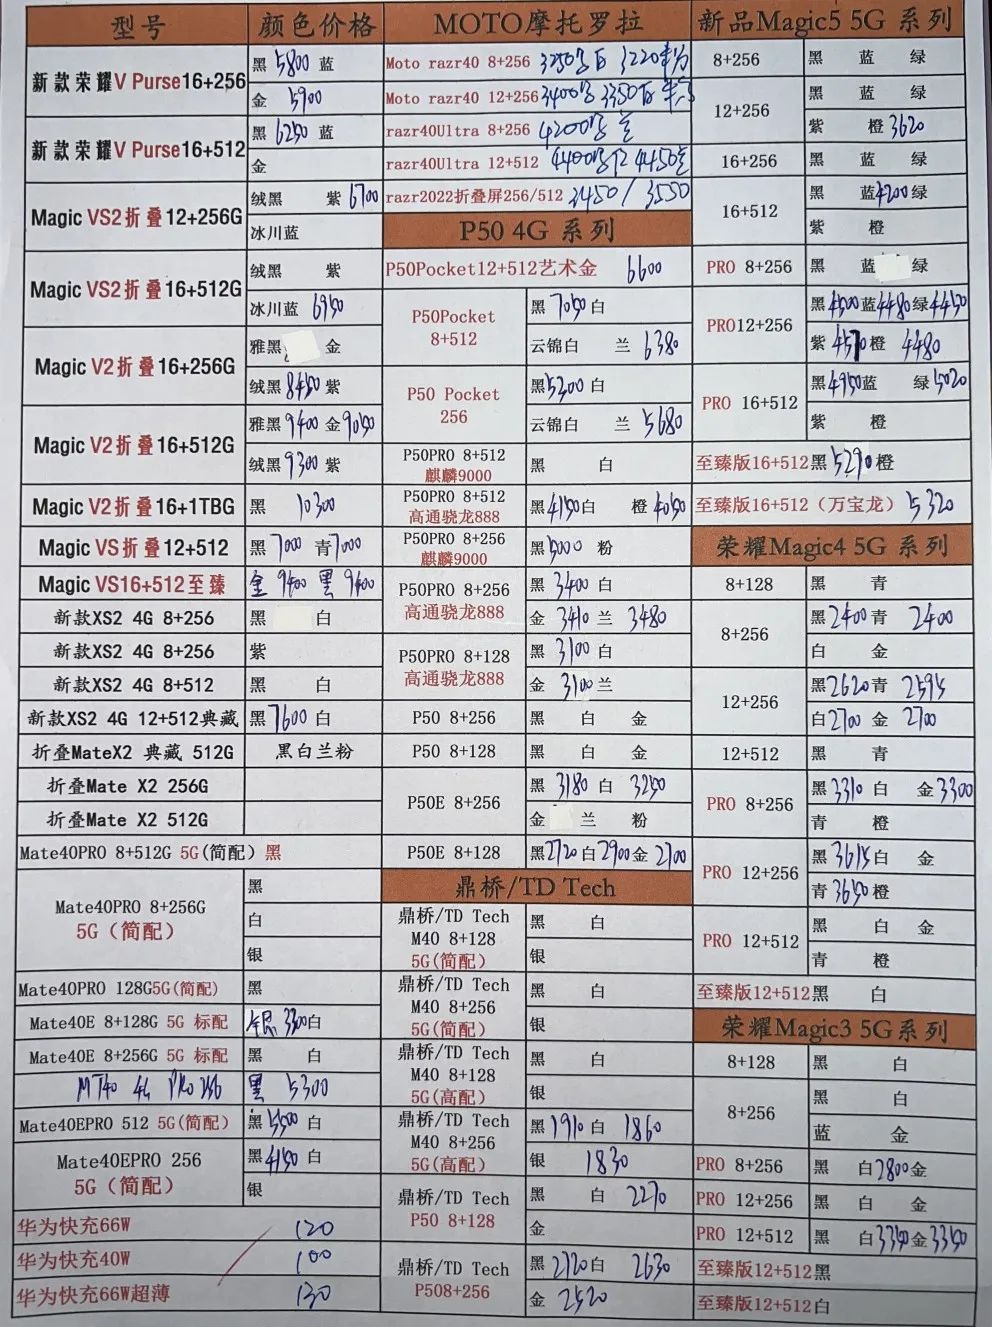 型号 颜色价格
新款荣耀V Purse16+256 黑 5800 蓝
金 5900
新款荣耀V Purse16+512 黑 6250 蓝
金
Magic VS2折叠12+256G 绒黑 紫 6700
冰川蓝
Magic VS2折叠16+512G 绒黑 紫
冰川蓝 6950
Magic V2折叠16+256G 雅黑 金
绒黑 8450 紫
Magic V2折叠16+512G 雅黑 9400 金 9050
绒黑 9300 紫
Magic V2折叠16+1TBG 黑 10300
Magic VS折叠12+512 黑 7000 青 7000
Magic VS16+512至臻 金 9400 黑 9400
新款XS2 4G 8+256 黑 白
新款XS2 4G 8+256 紫
新款XS2 4G 8+512 黑 白
新款XS2 4G 12+512典藏 黑 7600 白
折叠MateX2 典藏 512G 黑白兰粉
折叠Mate X2 256G
折叠Mate X2 512G
Mate40PRO 8+512G 5G(简配) 黑
Mate40PRO 8+256G
5G(简配)
黑
白
银
Mate40PRO 128G5G(简配) 黑
Mate40E 8+128G 5G 标配 银 3300 白
Mate40E 8+256G 5G 标配 黑 白
MT40 4G PRO 256 黑 5300
Mate40EPRO 512 5G(简配) 黑 5500 白
Mate40EPRO 256
5G(简配)
黑 4150 白
银
华为快充66W 120
华为快充40W 100
华为快充66W超薄 130
MOTO摩托罗拉
Moto razr40 8+256 3250 白 3220
Moto razr40 12+256 3400 3350
razr40Ultra 8+256 4200
razr40Ultra 12+512 4400 4450
razr2022折叠屏256/512 3450 / 3550
P50 4G 系列
P50Pocket12+512艺术金 6600
P50Pocket
8+512
黑 7050 白
云锦白 兰 6380
P50 Pocket
256
黑 5300 白
云锦白 兰 5680
P50PRO 8+512
麒麟9000
黑 白
P50PRO 8+512
高通骁龙888
黑 4150 白 橙 4050
P50PRO 8+256
麒麟9000
黑 5000 粉
P50PRO 8+256
高通骁龙888
黑 3400 白
金 3410 兰 3480
P50PRO 8+128
高通骁龙888
黑 3100 白
金 3100 兰
P50 8+256 黑 白 金
P50 8+128 黑 白 金
P50E 8+256
黑 3180 白 3250
金 兰 粉
P50E 8+128 黑 2720 白 2900 金 2700
鼎桥/TD Tech
鼎桥/TD Tech
M40 8+128
5G(简配)
黑 白
银
鼎桥/TD Tech
M40 8+256
5G(简配)
黑 白
银
鼎桥/TD Tech
M40 8+128
5G(高配)
黑 白
银
鼎桥/TD Tech
M40 8+256
5G(高配)
黑 1910 白 1860
银 1830
鼎桥/TD Tech
P50 8+128
黑 白 2270
金
鼎桥/TD Tech
P508+256
黑 2720 白 2630
金 2520
新品Magic5 5G 系列
8+256 黑 蓝 绿
12+256 黑 蓝 绿
紫 橙 3620
16+256 黑 蓝 绿
16+512 黑 蓝 4200 绿
紫 橙
PRO 8+256 黑 蓝 绿
PRO12+256 黑 4500 蓝 4480 绿 4450
紫 4570 橙 4480
PRO 16+512 黑 4950 蓝 绿 5020
紫 橙
至臻版16+512 黑 5290 橙
至臻版16+512（万宝龙） 5320
荣耀Magic4 5G 系列
8+128 黑 青
8+256 黑 2400 青 2400
白 金
12+256 黑 2620 青 2595
白 2700 金 2700
12+512 黑 青
PRO 8+256 黑 3310 白 金 3300
青 橙
PRO 12+256 黑 3615 白 金
青 3650 橙
PRO 12+512 黑 白 金
青 橙
至臻版12+512 黑 白
荣耀Magic3 5G系列
8+128 黑 白
8+256 黑 白
蓝 金
PRO 8+256 黑 白 2800 金
PRO 12+256 黑 白 金
PRO 12+512 黑 白 3350 金 3350
至臻版12+512黑
至臻版12+512白